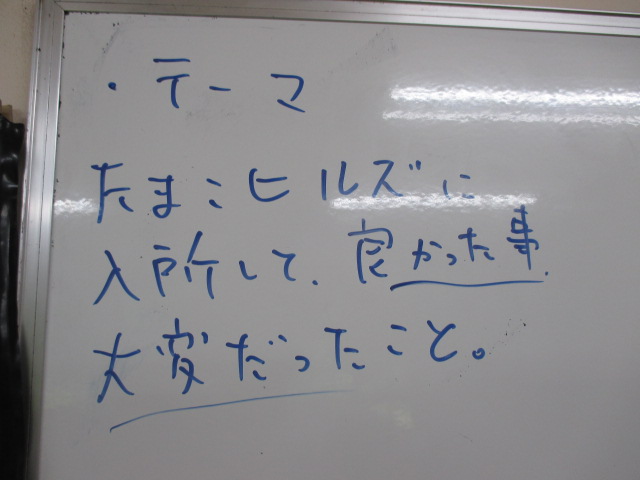 ・テーマ
たまこヒルズに
入所して、良かった事、
大変だったこと。